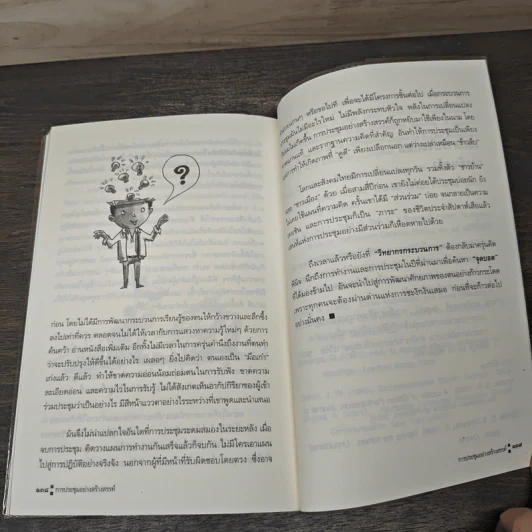 ?
ก่อน โดยไม่ได้มีการพัฒนากระบวนการเรียนรู้ของตนให้กว้างขวางและลึกซึ้ง
ลงไปเท่าที่ควร ตลอดจนไม่ได้ให้เวลากับการแสวงหาความรู้ใหม่ๆ ด้วยการ
ค้นคว้า อ่านหนังสือเพิ่มเติม อีกทั้งไม่มีเวลาในการครุ่นคำนึงถึงงานที่ตนทำ
ว่าจะปรับปรุงให้ดีขึ้นได้อย่างไร เผลอๆ ยิ่งไปคิดว่า ตนเองเป็น “มือเก่า”
เก่งแล้ว ดีแล้ว ทำให้ขาดความอ่อนน้อมถ่อมตนในการรับฟัง ขาดความ
ละเอียดอ่อน และความไวในการรับรู้ ไม่ได้สังเกตเห็นอากัปกิริยาของผู้เข้า
ร่วมประชุมว่าเป็นอย่างไร มีสีหน้าแววตาอย่างไรระหว่างที่เขาพูดและนำเสนอ
มันจึงไม่น่าแปลกใจอันใดที่การประชุมระดมสมองในระยะหลัง เมื่อ
จบการประชุม คิดวางแผนการทำงานกันเสร็จแล้วก็จบกัน ไม่มีใครเอาแผน
ไปสู่การปฏิบัติอย่างจริงจัง นอกจากผู้ที่มีหน้าที่รับผิดชอบโดยตรง ซึ่งอาจ
๑๓๘ การประชุมอย่างสร้างสรรค์
หรือขอไปที เพื่อจะได้มีโครงการชิ้นต่อไป เมื่อกระบวนการ
ไม่มีอะไรใหม่ ไม่มีพลังกระทบหัวใจ พลังในการเปลี่ยนแปลง
การประชุมอย่างสร้างสรรค์ก็ถูกหยิบมาใช้เพียงในนาม โดย
และรากฐานความคิดที่สำคัญ อันทำให้การประชุมเป็นเพียง
ทำให้เกิดภาพที่ “ดูดี” เพียงเปลือกนอก แต่ว่างเปล่าเหมือน
โลกและสังคมไทยมีการเปลี่ยนแปลงทุกวัน รวมทั้งตัว “ชาวบ้าน”
“ชาวเมือง” ด้วย เมื่อสามสี่ปีก่อน เขายังไม่ค่อยได้ประชุมบ่อยนัก ยัง
ครั้นเขาได้มี “ส่วนร่วม” บ่อย จนกลายเป็นความ
และการประชุมก็เป็น “ภาระ” ของชีวิตประจำสัปดาห์เสียแล้ว
การประชุมอย่างมีส่วนร่วมก็เหือดหายไปด้วย
ถึงเวลาแล้วหรือยังที่ “วิทยากรกระบวนการ” ต้องกลับมาครุ่นคิด
นึกถึงการทำงานและการประชุมในปีที่ผ่านมาเพื่อค้นหา “จุดบอด”
ที่ได้มองข้ามไป อันจะนำไปสู่การพัฒนาศักยภาพของตนอย่างก้าวกระโดด
เพราะทุกคนจะต้องผ่านด่านแห่งการชะงักงันเสมอ ก่อนที่จะก้าวต่อไป
อย่างมั่นคง
การประชุมอย่างสร้างสรรค์ ๑๓๙